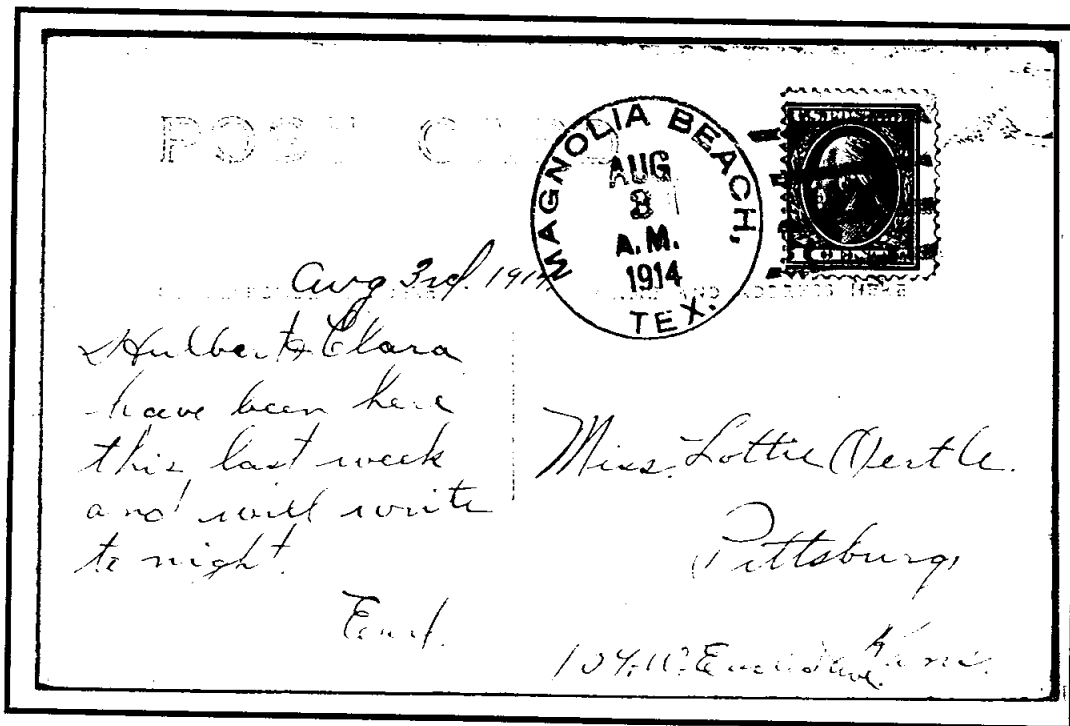 POST CARD
MAGNOLIA BEACH,
AUG
3
A.M.
1914
TEX.
Aug 3rd. 1914
Hulbert & Clara
have been here
this last week
and will write
to night.
AND ADDRESS HERE
Miss. Lottie Oertle.
Pittsburg,
Kans.
104. W. Euclid Ave.